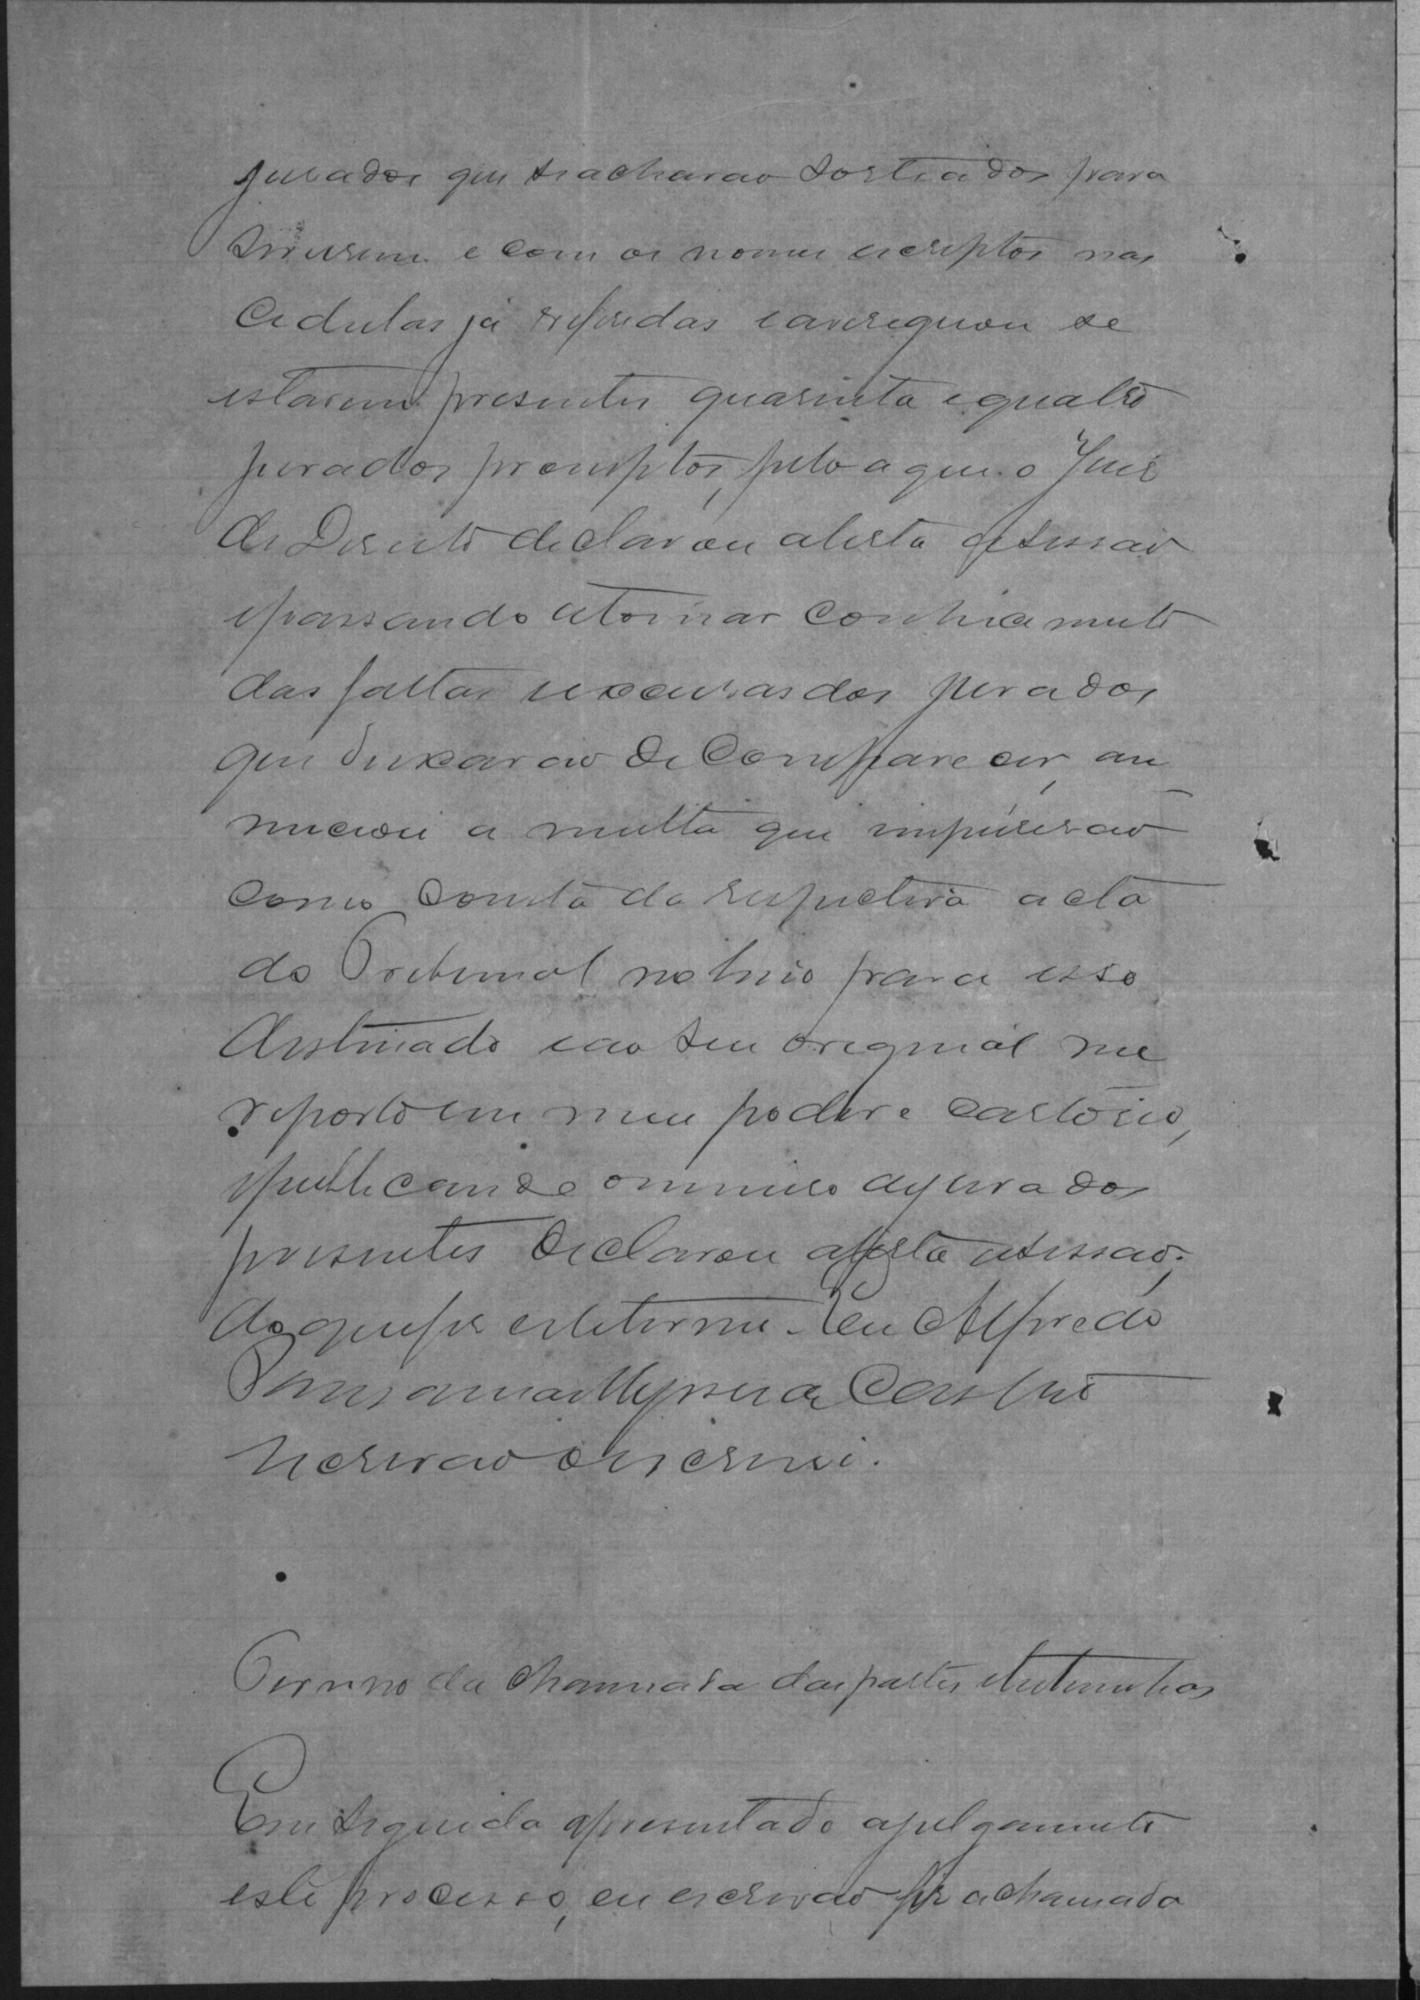 jurados que se acharão sorteados para
servirem e com os nomes escriptos nas
cedulas já referidas e averiguou se
estarem presentes quarenta e quatro
jurados promptos, pelo a que o Juis
de Direito declarou aberta a sessão
e passando a tomar conhicimento
das faltas e excusas dos jurados
que deixarão de comparecer, an
nunciou a multa que impuserão
como consta da respectiva acta
do Tribunal no livro para esse
destinado e ao seu original me
reporto em meu poder e cartorio,
e publicando o numero de jurados
presentes declarou aberta a sessão;
do que fis este termo. Eu Alfredo
de Castro
escrivão o escrevi.
Termo da chamada das partes e testemunhas
Em seguida apresentado a julgamento
este processo, eu escrivão fis a chamada